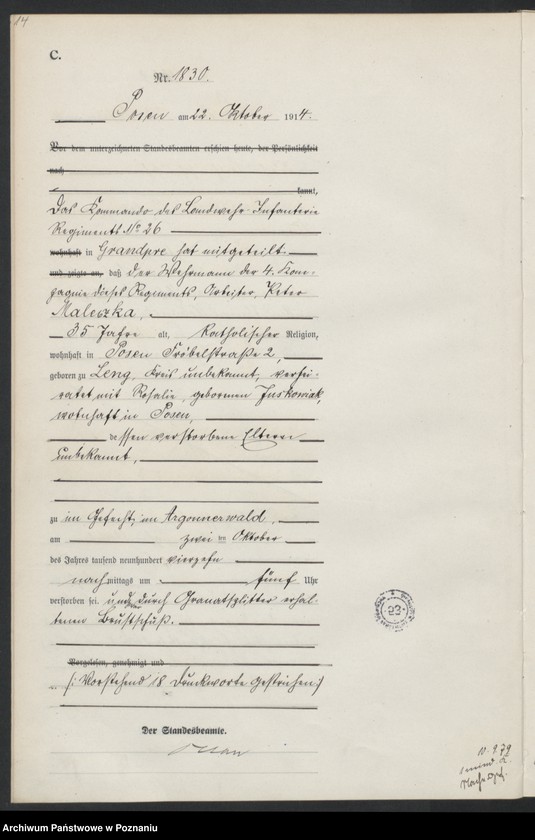 14
C.
Nr. 1830.
Posen am 22. Oktober 1914.
Vor dem unterzeichneten Standesbeamten erschien heute, der Persönlichkeit
nach
kannt,
Das Kommando des Landwehr-Infanterie
Regiments No 26
wohnhaft in Grandpre hat mitgeteilt
und zeigte an, daß der Wehrmann der 4. Kom-
pagnie dieses Regiments, Arbeiter, Peter
Maleszka,
35 Jahre alt, katholischer Religion,
wohnhaft in Posen Fröbelstraße 2,
geboren zu Leng, Kreis unbekannt, verhei-
ratet mit Rosalie, geborenen Juskowiak,
wohnhaft in Posen,
dessen verstorbene Eltern
unbekannt,
zu im Gefecht im Argonnerwald,
am zwei ten Oktober
des Jahres tausend neunhundert vierzehn
nachmittags um fünf Uhr
verstorben sei, und durch Granatsplitter erhal-
tenen Brustschuß.
Vorgelesen, genehmigt und
/: Vorstehend 18 Druckworte gestrichen :/
Der Standesbeamte.
23
Archiwum Państwowe w Poznaniu